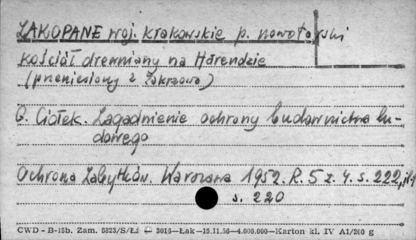 ZAKOPANE woj. krakowskie p. nowotarski
kościół drewniany na Harendzie
(przeniesiony z Zakrzowa)
G. Ciołek. Zagadnienie ochrony budownictwa lu-
dowego
Ochrona Zabytków. Warszawa 1952. R. 5 z. 4. s. 222, il.
s. 220
CWD - B-15b. Zam. 5823/S/Łż 3016-Łak-15.11.56-4.000.000-Karton kl. IV A1/200 g